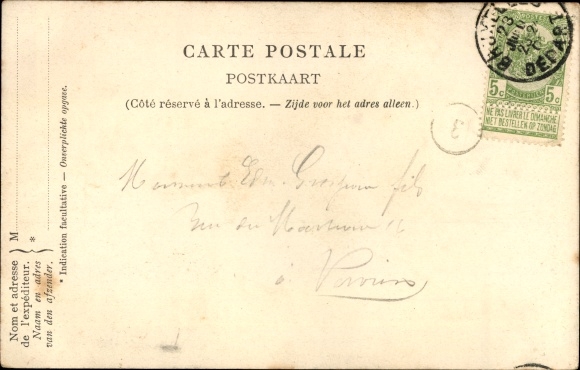 CARTE POSTALE
POSTKAART
(Côté réservé à l'adresse. — Zijde voor het adres alleen.)
5c 5c
NE PAS LIVRER LE DIMANCHE
NIET BESTELLEN OP ZONDAG
3
Monsieur Edm. fils
Rue du
à Verviers
Nom et adresse
de l'expéditeur.
Naam en adres
van den afzender.
M
*
* Indication facultative — Onverplichte opgave.